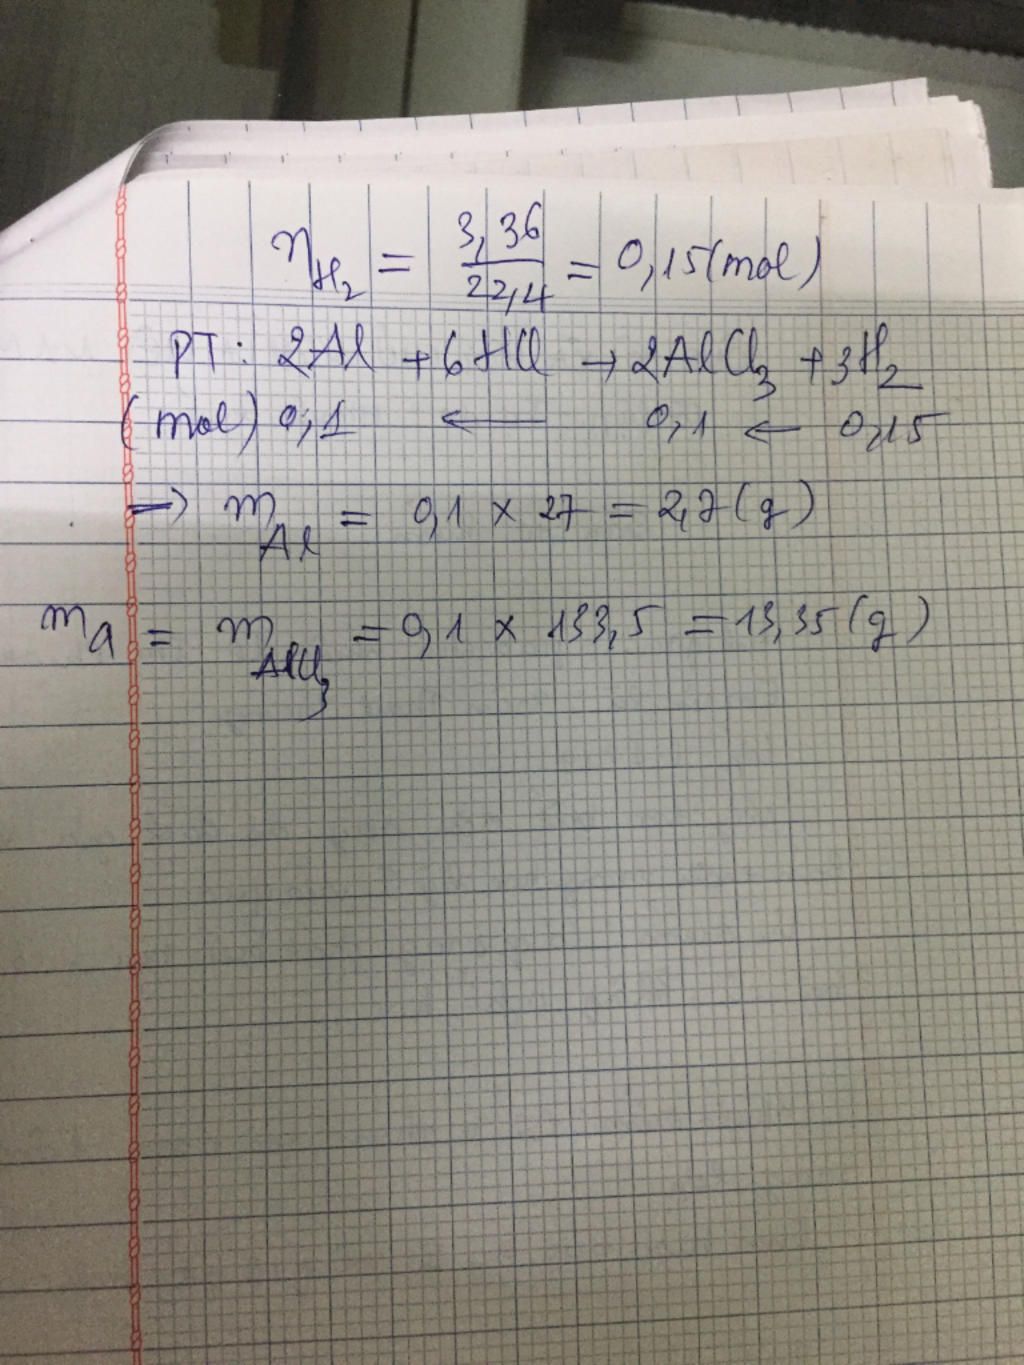 n_H₂ = 3,36/22,4 = 0,15 (mol)
PT: 2Al + 6HCl → 2AlCl₃ + 3H₂
(mol) 0,1 ← 0,1 ← 0,15
→ m_Al = 0,1 × 27 = 2,7 (g)
m_a = m_AlCl₃ = 0,1 × 133,5 = 13,35 (g)